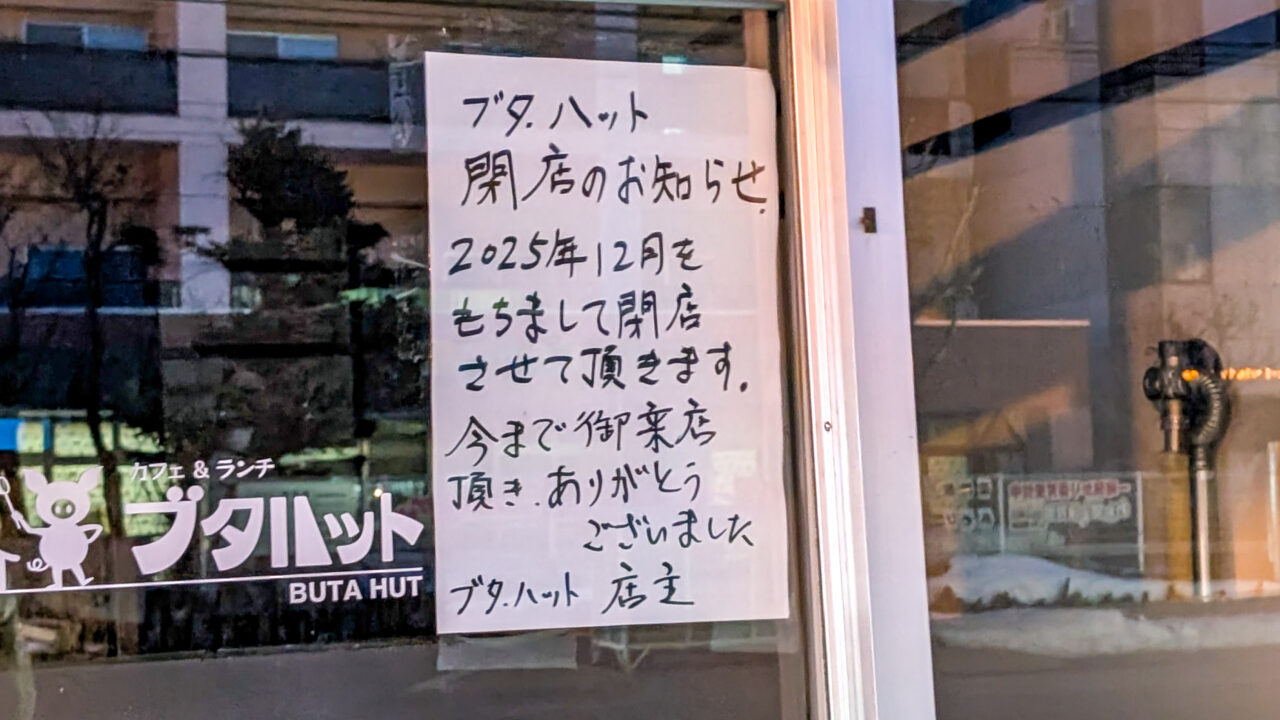 ブタ.ハット
閉店のお知らせ.
2025年12月を
もちまして閉店
させて頂きます。
今まで御来店
頂き、ありがとう
ございました
ブタ.ハット 店主
カフェ & ランチ
ブタハット
BUTA HUT